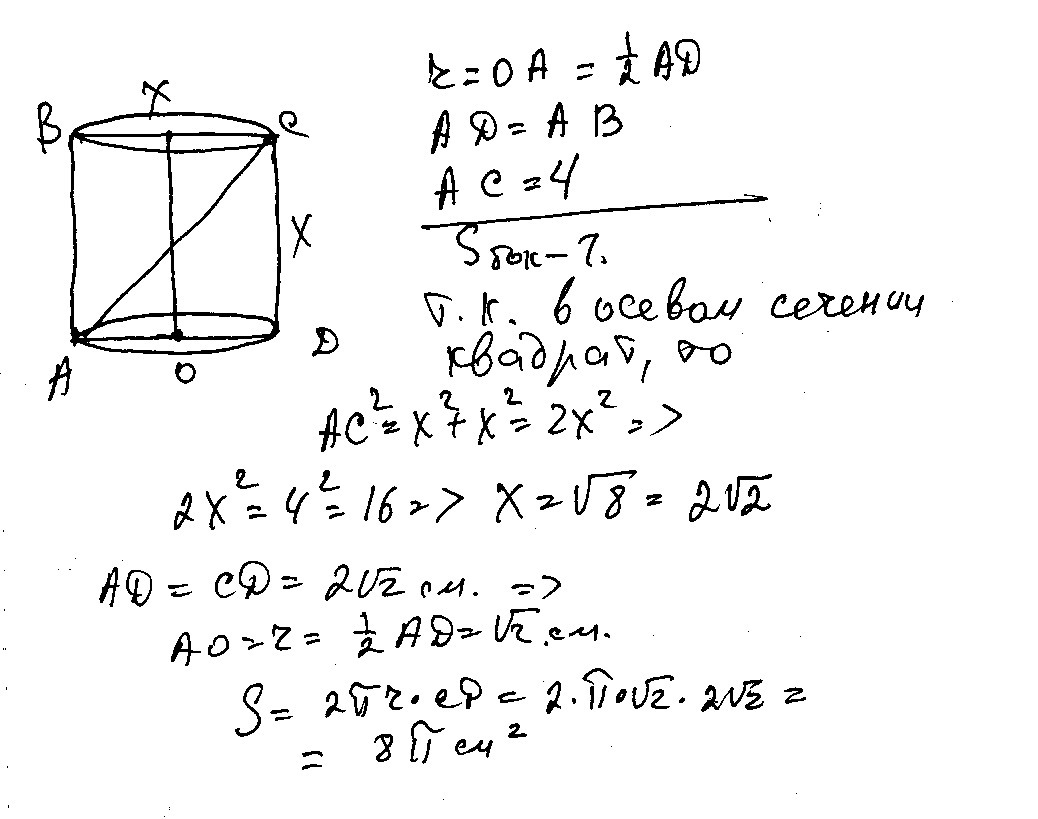 X
B
C
X
A
O
D
r = OA = 1/2 AD
AD = AB
AC = 4
Sбок - ?.
т.к. в осевом сечении
квадрат, то
AC² = x² + x² = 2x² =>
2x² = 4² = 16 => x = √8 = 2√2
AD = CD = 2√2 см. =>
AO = r = 1/2 AD = √2 см.
S = 2πr · CD = 2 · π · √2 · 2√2 =
= 8π см²